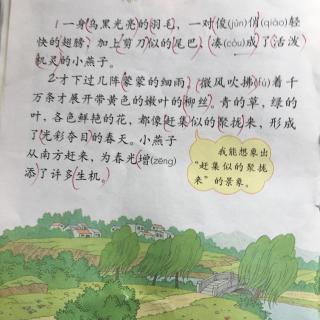 1一身乌黑光亮的羽毛，一对俊(jùn)俏(qiào)轻
快的翅膀，加上剪刀似的尾巴，凑(còu)成了活泼
机灵的小燕子。
2才下过几阵蒙蒙的细雨，微风吹拂(fú)着千
万条才展开带黄色的嫩叶的柳丝。青的草，绿的
叶，各色鲜艳的花，都像赶集似的聚拢来，形成
了光彩夺目的春天。小燕子
从南方赶来，为春光增(zēng)
添了许多生机。
我能想象出
“赶集似的聚拢
来”的景象。